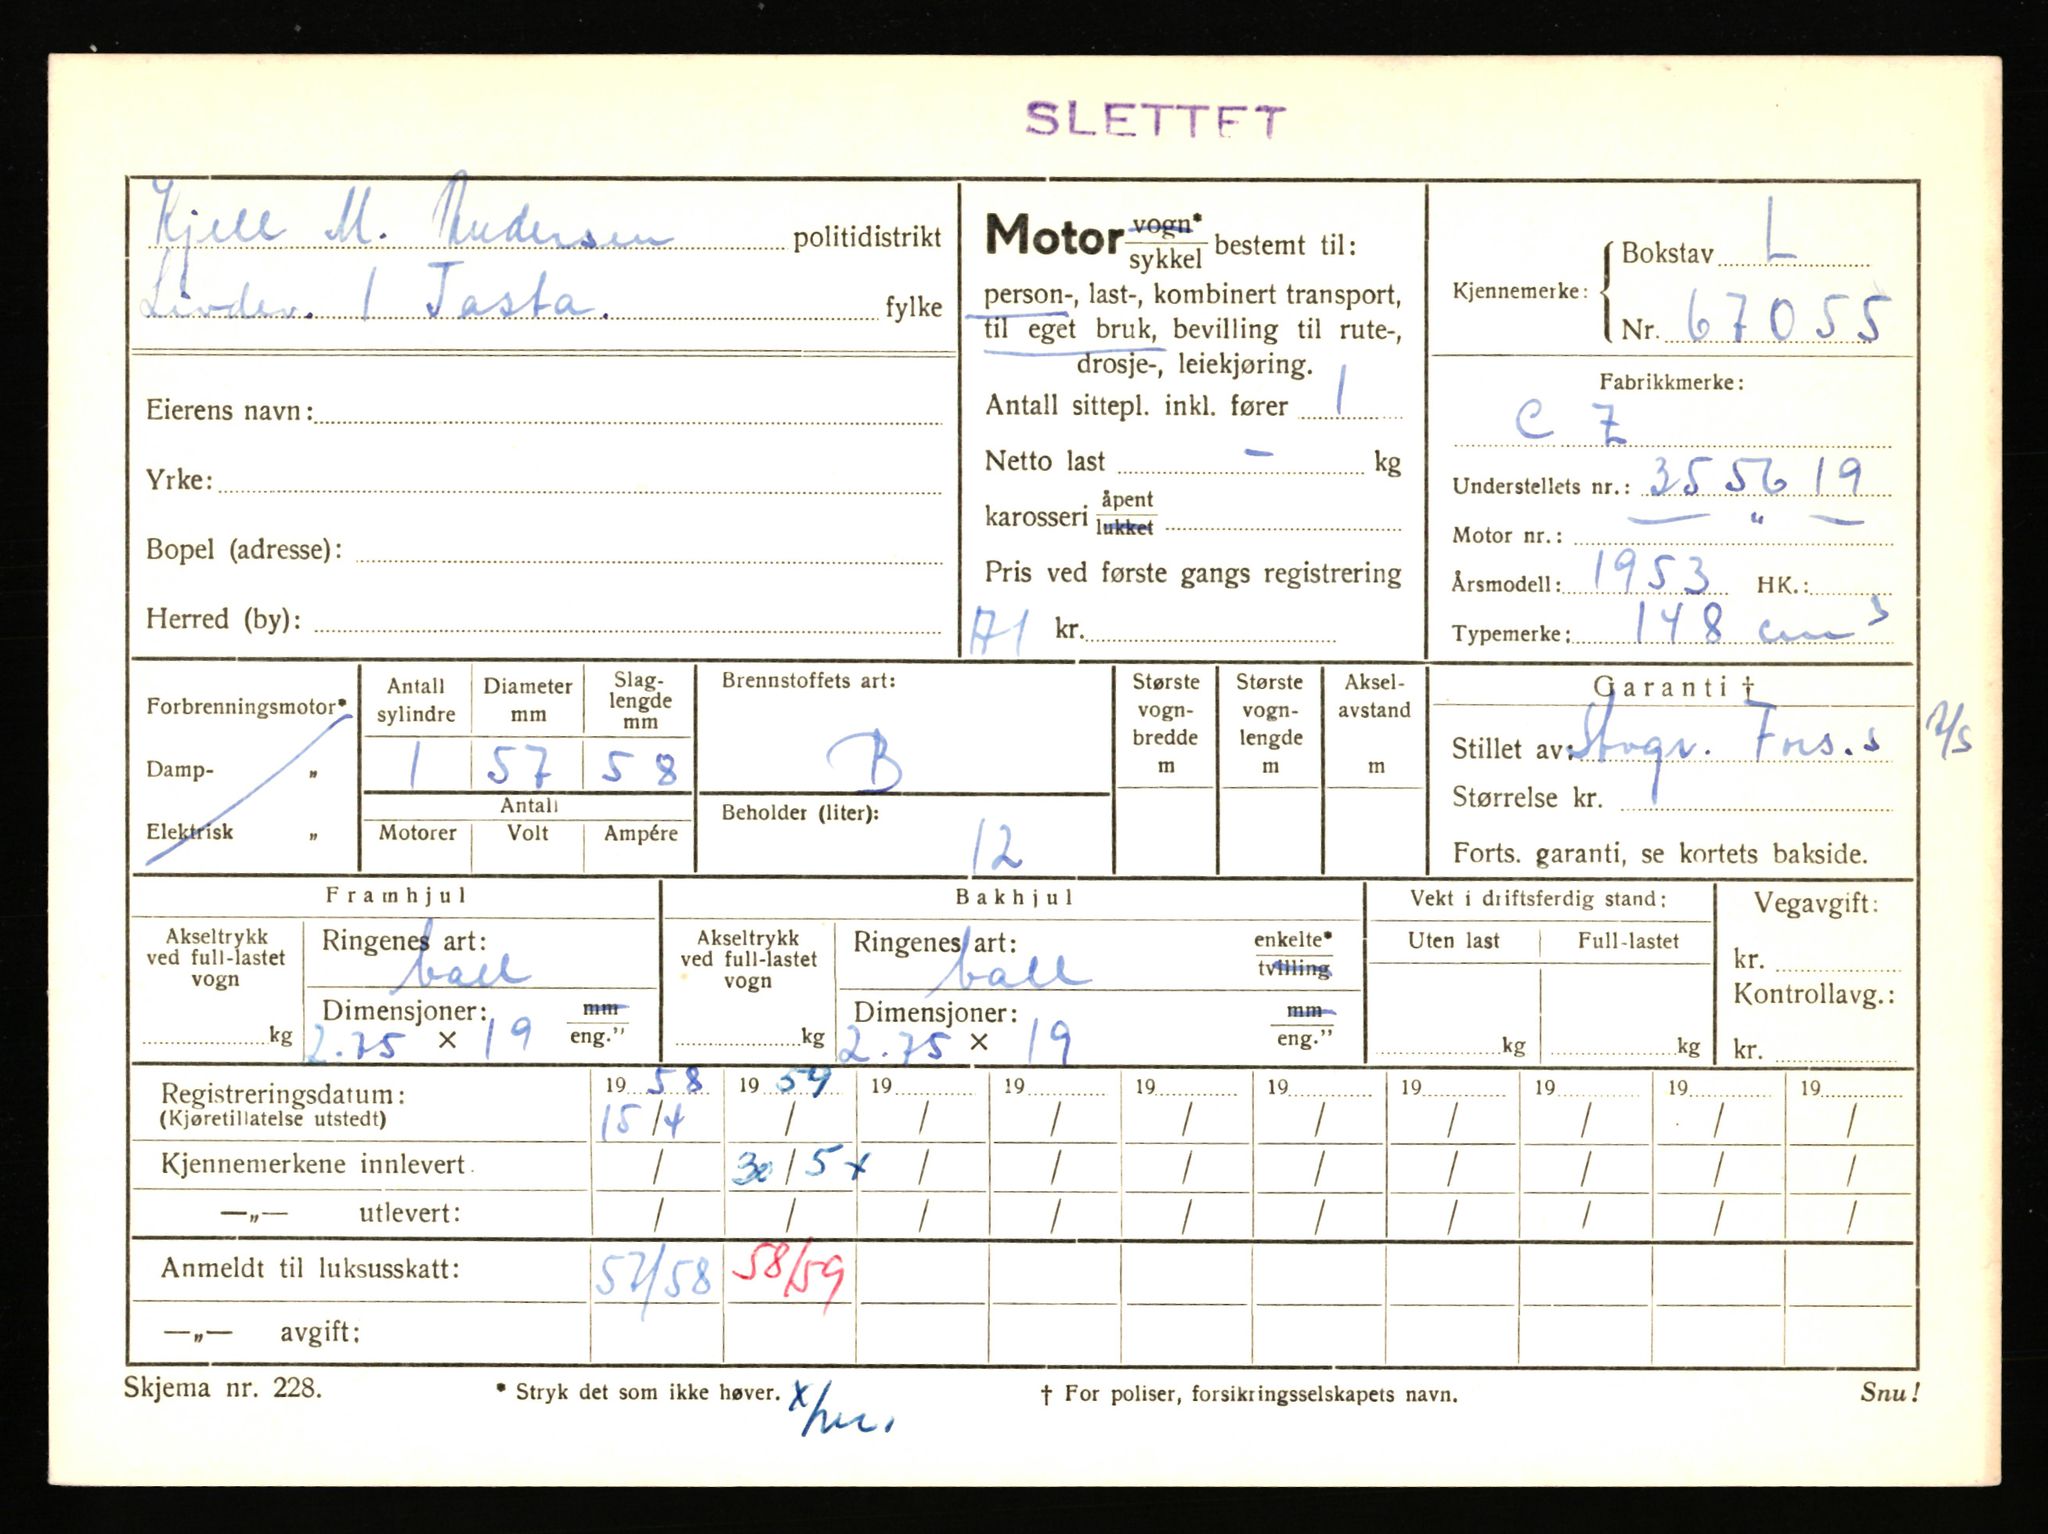 SLETTET
Kjell M. Andersen politidistrikt
1 Tasta. fylke
Eierens navn:
Yrke:
Bopel (adresse):
Herred (by):
Motor vogn* sykkel bestemt til:
person-, last-, kombinert transport,
til eget bruk, bevilling til rute-,
drosje-, leiekjøring.
Antall sittepl. inkl. fører 1
Netto last - kg
karosseri åpent lukket
Pris ved første gangs registrering
A1 kr.
Kjennemerke: Bokstav L
Nr. 67055
Fabrikkmerke:
C Z
Understellets nr.: 355619
Motor nr.: — " —
Årsmodell: 1953 HK.:
Typemerke: 148 cm³
Forbrenningsmotor*
Damp- "
Elektrisk "
Antall sylindre Diameter mm Slaglengde mm
1 57 58
Antall
Motorer Volt Ampére
Brennstoffets art:
B
Beholder (liter):
12
Største vogn-bredde m
Største vogn-lengde m
Aksel-avstand m
Garanti †
Stillet av: Fors.s
Størrelse kr.
Forts. garanti, se kortets bakside.
Framhjul
Akseltrykk ved full-lastet vogn kg
Ringenes art:
ball
Dimensjoner: mm
2.75 × 19 eng."
Bakhjul
Akseltrykk ved full-lastet vogn kg
Ringenes art: enkelte*
ball tvilling
Dimensjoner: mm
2.75 × 19 eng."
Vekt i driftsferdig stand:
Uten last Full-lastet
kg kg
Vegavgift:
kr.
Kontrollavg.:
kr.
Registreringsdatum: 1958 1959 19 19 19 19 19 19 19 19
(Kjøretillatelse utstedt) 15/4 / / / / / / / / /
Kjennemerkene innlevert / 30/5 x / / / / / / / /
—„— utlevert: / / / / / / / / / /
Anmeldt til luksusskatt: 57/58 58/59
—„— avgift:
Skjema nr. 228. * Stryk det som ikke høver. † For poliser, forsikringsselskapets navn. Snu!